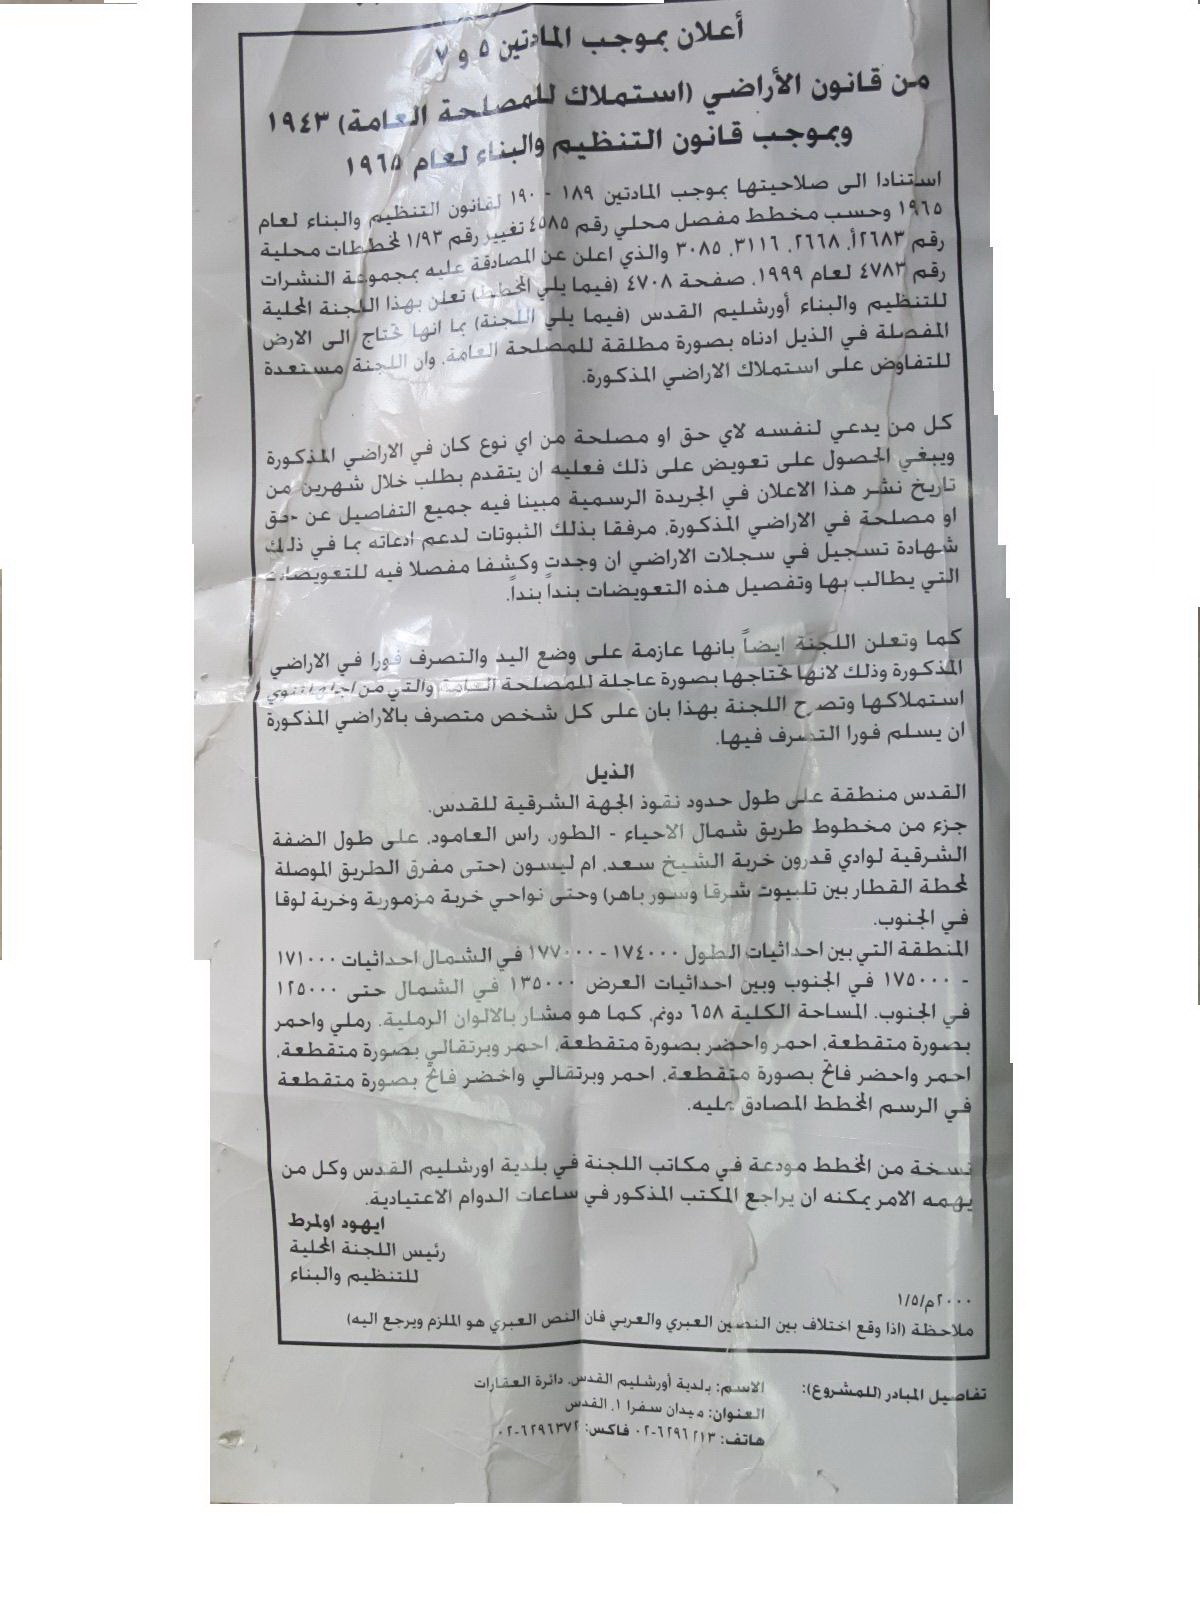 أعلان بموجب المادتين ٥ و ٧
من قانون الأراضي (استملاك للمصلحة العامة) ١٩٤٣
وبموجب قانون التنظيم والبناء لعام ١٩٦٥
استنادا الى صلاحيتها بموجب المادتين ١٨٩ - ١٩٠ لقانون التنظيم والبناء لعام
١٩٦٥ وحسب مخطط مفصل محلي رقم ٤٥٨٥ تغيير رقم ١/٩٣ لمخططات محلية
رقم ٢٦٨٣أ، ٢٦٦٨، ٣١١٦، ٣٠٨٥ والذي اعلن عن المصادقة عليه بمجموعة النشرات
رقم ٤٧٨٣ لعام ١٩٩٩، صفحة ٤٧٠٨ (فيما يلي المخطط) تعلن بهذا اللجنة المحلية
للتنظيم والبناء أورشليم القدس (فيما يلي اللجنة) بما انها تحتاج الى الارض
المفصلة في الذيل ادناه بصورة مطلقة للمصلحة العامة، وان اللجنة مستعدة
للتفاوض على استملاك الاراضي المذكورة.
كل من يدعي لنفسه لاي حق او مصلحة من اي نوع كان في الاراضي المذكورة
ويبغي الحصول على تعويض على ذلك فعليه ان يتقدم بطلب خلال شهرين من
تاريخ نشر هذا الاعلان في الجريدة الرسمية مبينا فيه جميع التفاصيل عن حق
او مصلحة في الاراضي المذكورة، مرفقا بذلك الثبوتات لدعم ادعاته بما في ذلك
شهادة تسجيل في سجلات الاراضي ان وجدت وكشفا مفصلا فيه للتعويضات
التي يطالب بها وتفصيل هذه التعويضات بنداً بنداً.
كما وتعلن اللجنة ايضاً بانها عازمة على وضع اليد والتصرف فورا في الاراضي
المذكورة وذلك لانها تحتاجها بصورة عاجلة للمصلحة العامة والتي من اجلها تنوي
استملاكها وتصرح اللجنة بهذا بان على كل شخص متصرف بالاراضي المذكورة
ان يسلم فورا التصرف فيها.
الذيل
القدس منطقة على طول حدود نفوذ الجهة الشرقية للقدس.
جزء من مخطوط طريق شمال الاحياء - الطور، راس العامود، على طول الضفة
الشرقية لوادي قدرون خربة الشيخ سعد، ام ليسون (حتى مفرق الطريق الموصلة
لمحطة القطار بين تلبيوت شرقا وسور باهر) وحتى نواحي خربة مزمورية وخربة لوقا
في الجنوب.
المنطقة التي بين احداثيات الطول ١٧٤٠٠٠ - ١٧٧٠٠٠ في الشمال احداثيات ١٧١٠٠٠
- ١٧٥٠٠٠ في الجنوب وبين احداثيات العرض ١٣٥٠٠٠ في الشمال حتى ١٢٥٠٠٠
في الجنوب. المساحة الكلية ٦٥٨ دونم، كما هو مشار بالالوان الرملية، رملي واحمر
بصورة متقطعة، احمر واحضر بصورة متقطعة، احمر وبرتقالي بصورة متقطعة،
احمر واحضر فاتح بصورة متقطعة، احمر وبرتقالي واخضر فاتح بصورة متقطعة
في الرسم المخطط المصادق عليه.
نسخة من المخطط مودعة في مكاتب اللجنة في بلدية اورشليم القدس وكل من
يهمه الامر يمكنه ان يراجع المكتب المذكور في ساعات الدوام الاعتيادية.
ايهود اولمرط
رئيس اللجنة المحلية
للتنظيم والبناء
٢٠٠٠م/١/٥
ملاحظة (اذا وقع اختلاف بين النصين العبري والعربي فان النص العبري هو الملزم ويرجع اليه)
تفاصيل المبادر (للمشروع): الاسم: بلدية أورشليم القدس، دائرة العقارات
العنوان: ميدان سفرا ١، القدس
هاتف: ٦٢٩٦٢١٣-٠٢ فاكس: ٦٢٩٦٣٧٢-٠٢